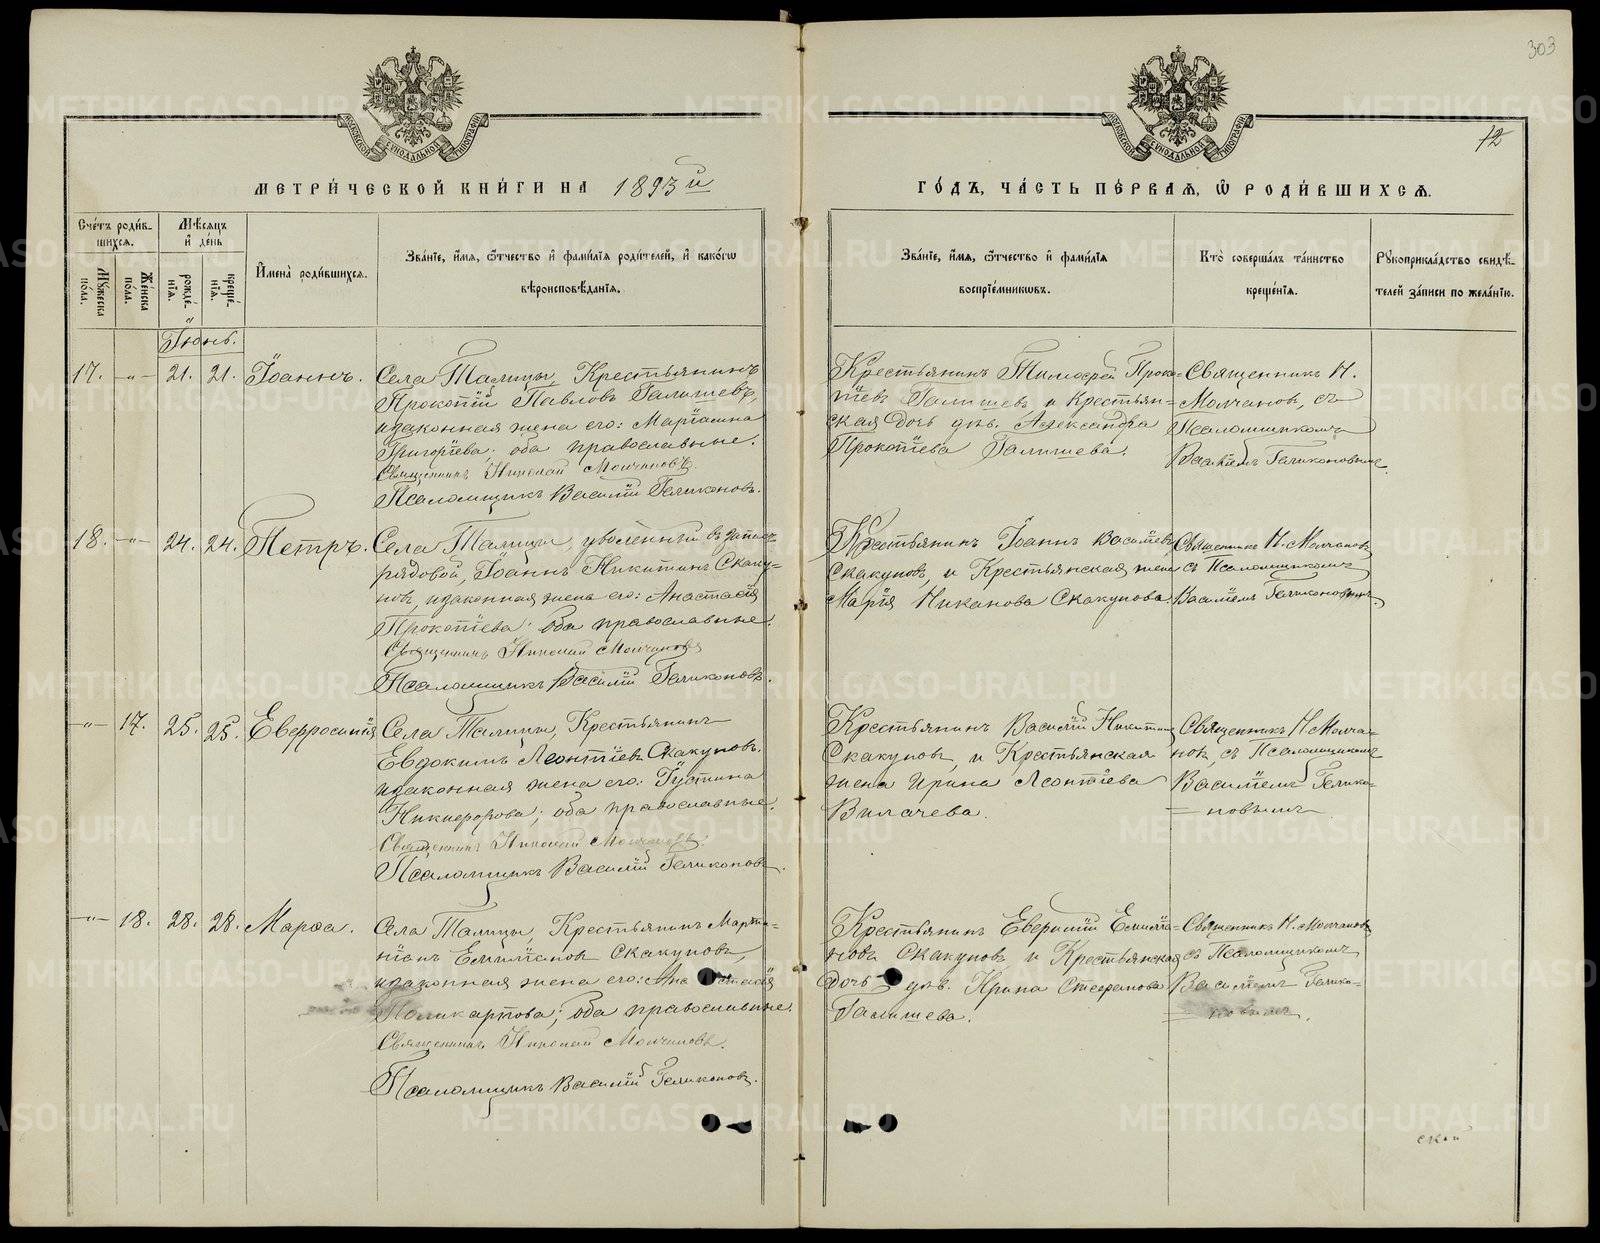 303
12
МЕТРИ́ЧЕСКОЙ КНИ́ГИ НА 1893й
ГО́ДЪ, ЧА́СТЬ ПЕ́РВАЯ, Ѽ РОДИ́ВШИХСЯ.
Сче́тъ роди́в-
шихся.
Мѣ́сяцъ
и҆ де́нь
Мꙋ́жеска по́ла.
Же́нска по́ла.
рожде́-
нїя.
креще́-
нїя.
И҆мена̀ роди́вшихся.
Зва́нїе, и҆́мя, ѻ҆́тчество и҆ фами́лїя роди́телей, и҆ како́гѡ
вѣроисповѣ́данїя.
Зва́нїе, и҆́мя, ѻ҆́тчество и҆ фами́лїя
воспрїе́мникѡвъ.
Кто̀ соверша́лъ та́инство
креще́нїя.
Рꙋкоприкла́дство свидѣ́-
телей за́писи по жела́нїю.
Іюнь.
17. -"- 21. 21. Іоаннъ.
Села Талицы, Крестьянинъ
Прокопій Павловъ Галишевъ,
и законная жена его: Маріамна
Григоріева; оба православные.
Священникъ Николай Молчановъ.
Псаломщикъ Василій Геликоновъ.
Крестьянинъ Тимофей Проко-
піевъ Галишевъ, и Крестьян-
ская дочь дѣв. Александра
Прокопіева Галишева.
Священникъ Н.
Молчановъ, съ
Псаломщикомъ
Василіемъ Геликоновымъ.
18. -"- 24. 24. Петръ.
Села Талицы, уволенный въ запас
рядовой, Іоаннъ Никитинъ Скаку-
новъ, и законная жена его: Анастасія
Прокопіева; оба православные.
Священникъ Николай Молчановъ
Псаломщикъ Василій Геликоновъ.
Крестьянинъ Іоаннъ Василіевъ
Скакуновъ, и Крестьянская жена
Марія Никанова Скакунова.
Священникъ Н. Молчановъ
съ Псаломщикомъ
Василіемъ Геликоновымъ.
-"- 17. 25. 25. Евфросинія
Села Талицы, Крестьянинъ
Евдокимъ Леонтіевъ Скакуновъ,
и законная жена его: Іустина
Никифорова; оба православные.
Священникъ Николай Молчановъ.
Псаломщикъ Василій Геликоновъ.
Крестьянинъ Василій Никитинъ
Скакуновъ, и Крестьянская
жена Ирина Леонтіева
Вилачева.
Священникъ Н. Молча-
новъ, съ Псаломщикомъ
Василіемъ Гелико-
= новымъ
-"- 18. 28. 28. Марѳа.
Села Талицы, Крестьянинъ Марти-
ніанъ Емиліановъ Скакуновъ,
и законная жена его: Анастасія
Поликарпова; оба православные.
Священникъ Николай Молчановъ.
Псаломщикъ Василій Геликоновъ.
Крестьянинъ Еверимій Емилія-
новъ Скакуновъ и Крестьянская
дочь дѣв. Ирина Стефанова
Галишева.
Священникъ Н. Молчановъ
съ Псаломщикомъ
Василіемъ Гелико-
= новымъ.
METRIKI.GASO-URAL.RU